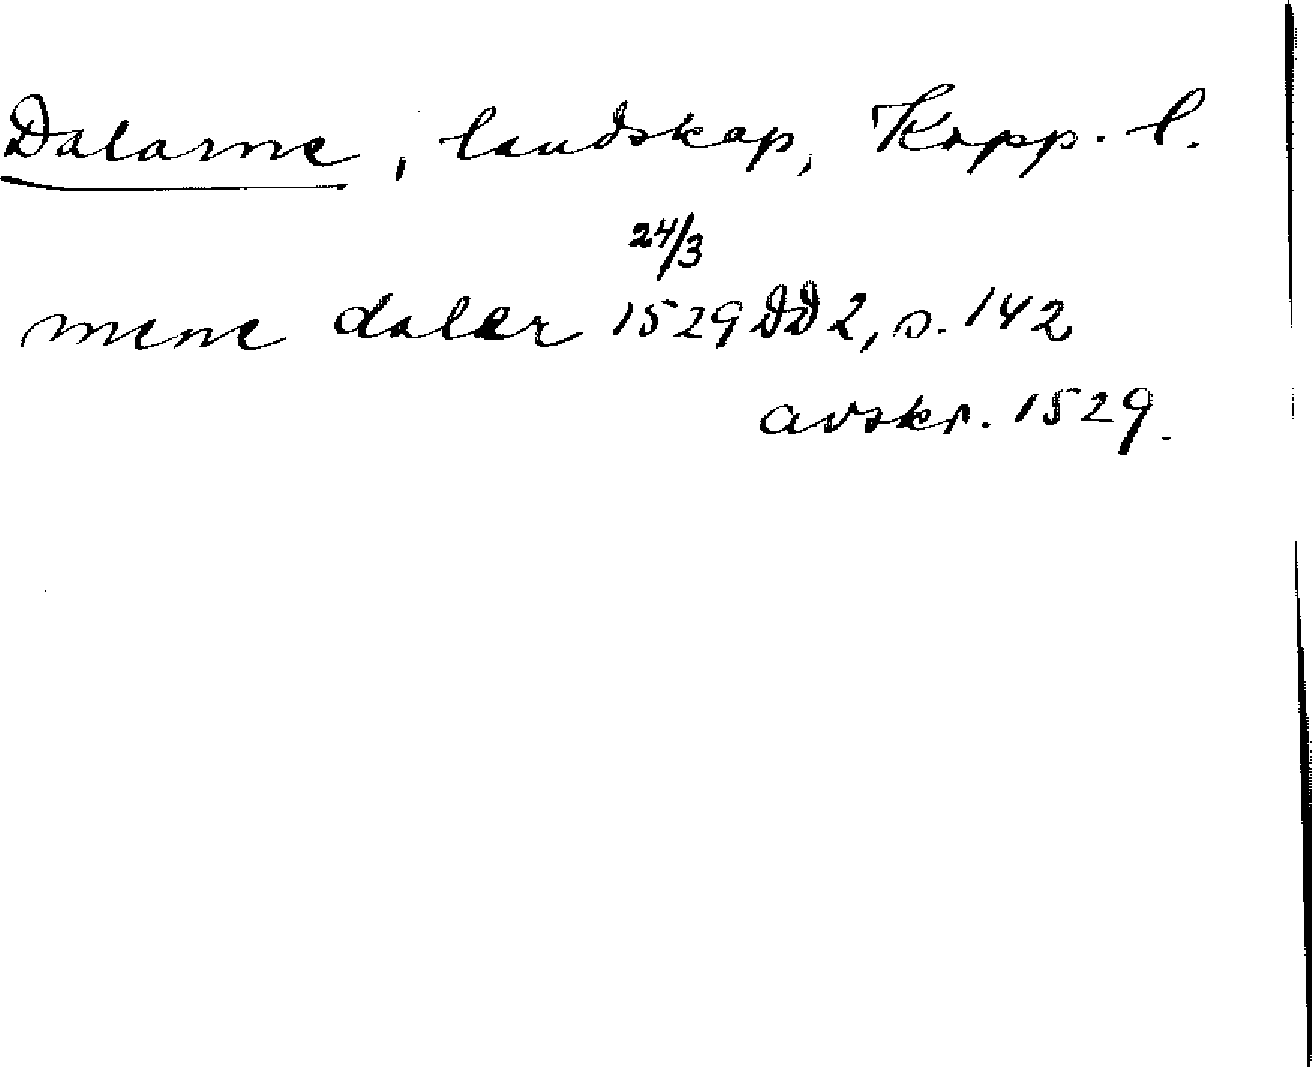 Dalarne, landskap, Kopp. l.
24/3
mene daler 1529 DD 2, s. 142
avskr. 1529.